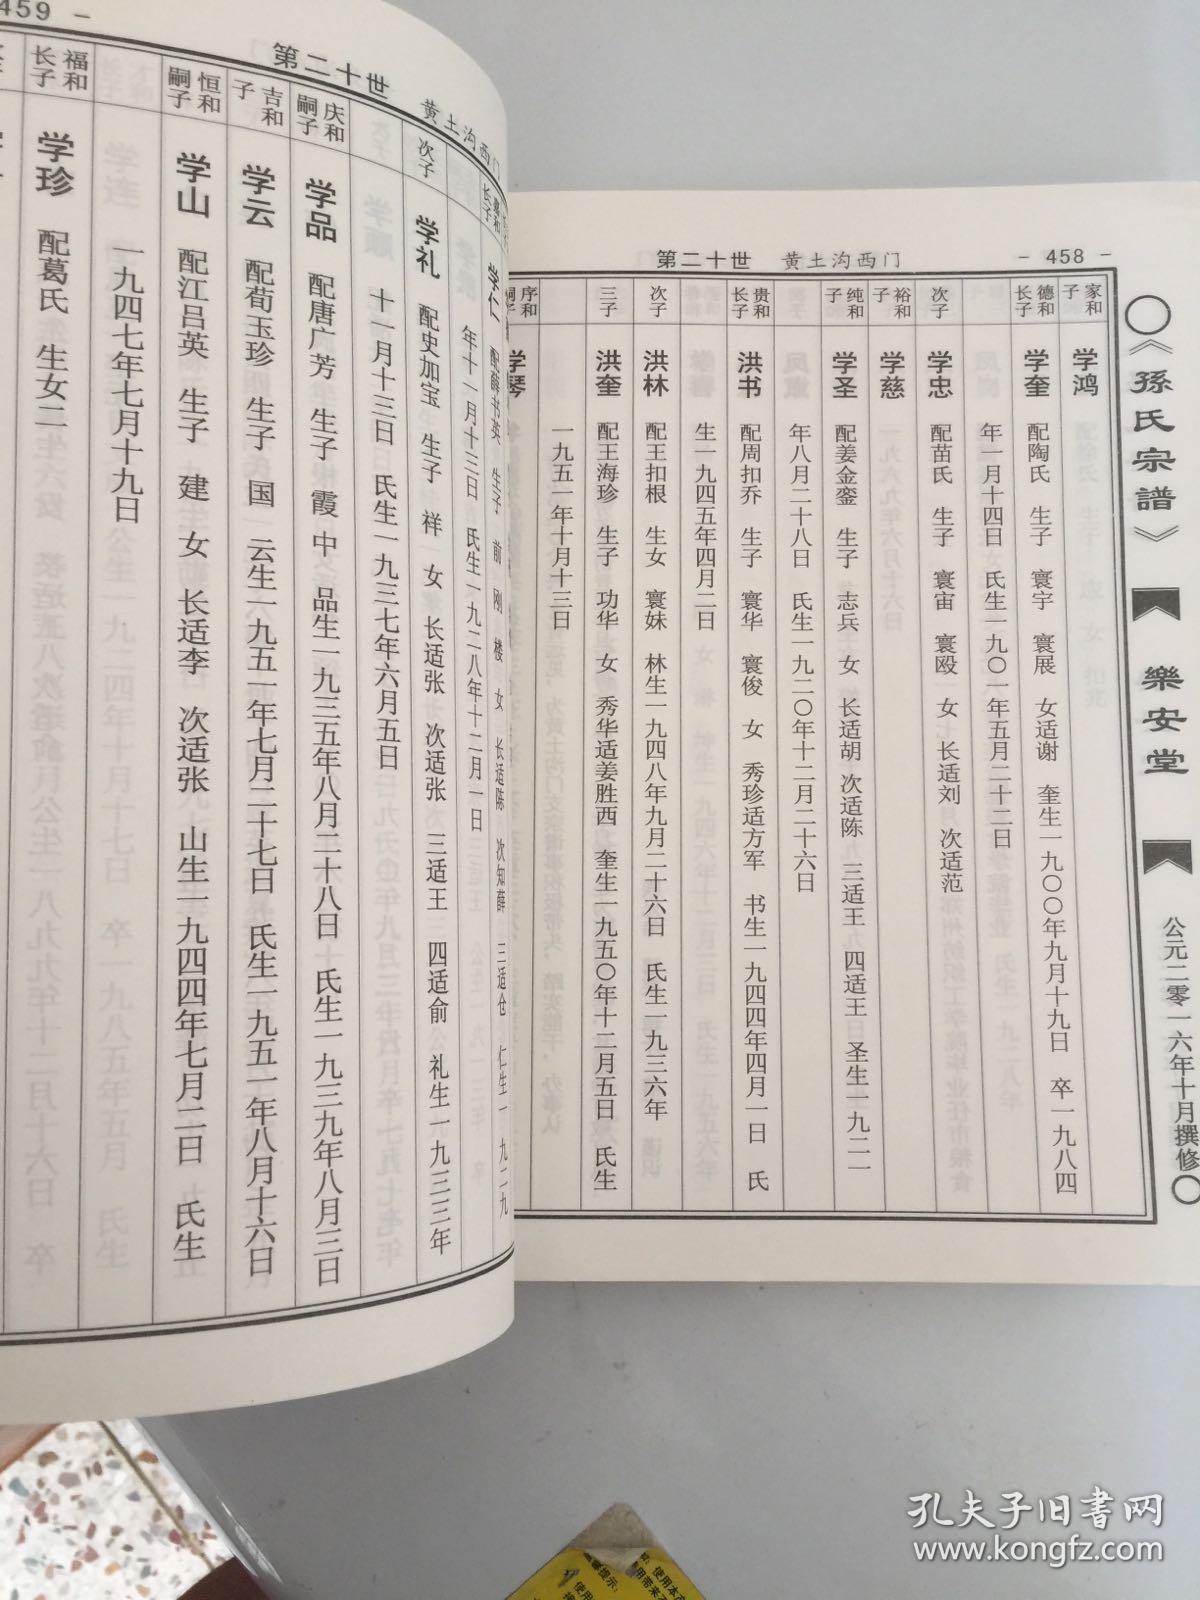 《孫氏宗譜》
樂安堂
公元二零一六年十月撰修
- 458 -
第二十世 黄土沟西门
家和子 学鸿
德和长子 学奎 配陶氏 生子 寰宇 寰展 女适谢 奎生一九〇〇年九月十九日 卒一九八四
年一月十四日 氏生一九〇一年五月二十二日
次子 学忠 配苗氏 生子 寰宙 寰殴 女 长适刘 次适范
裕和子 学慈
纯和子 学圣 配姜金銮 生子 志兵 女 长适胡 次适陈 三适王 四适王 圣生一九二一
年八月二十八日 氏生一九二〇年十二月二十六日
贵和长子 洪书 配周扣乔 生子 寰华 寰俊 女 秀珍适方军 书生一九四四年四月一日 氏
生一九四五年四月二日
次子 洪林 配王扣根 生女 寰妹 林生一九四八年九月二十六日 氏生一九三六年
三子 洪奎 配王海珍 生子 功华 女 秀华适姜胜西 奎生一九五〇年十二月五日 氏生
一九五一年十月十三日
序和嗣子 学琴
459 -
第二十世 黄土沟西门
长子 学仁 配薛书英 生子 前 刚 楼 女 长适陈 次知薛 三适仓 仁生一九二九
年十一月十三日 氏生一九二八年十二月一日
次子 学礼 配史加宝 生子 祥 女 长适张 次适张 三适王 四适俞 礼生一九三三年
十一月十三日 氏生一九三七年六月五日
庆和嗣子 学品 配唐广芳 生子 霞 中 品生一九三五年八月二十八日 氏生一九三九年八月三日
吉和子 学云 配荀玉珍 生子 国 云生一九五一年七月二十七日 氏生一九五一年八月十六日
恒和嗣子 学山 配江吕英 生子 建 女 长适李 次适张 山生一九四四年七月二日 氏生
一九四七年七月十九日
福和长子 学珍 配葛氏 生女二
孔夫子旧书网
www.kongfz.com